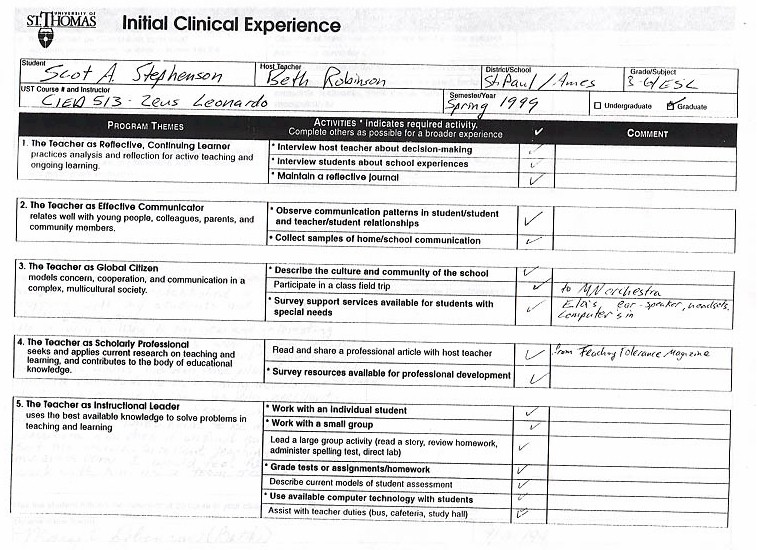 UNIVERSITY OF
ST. THOMAS
Initial Clinical Experience
Student
Scot A Stephenson
Host Teacher
Beth Robinson
District/School
St. Paul / Ames
Grade/Subject
3-6/ESL
UST Course # and Instructor
CIED 513 - Zeus Leonardo
Semester/Year
Spring 1999
Undergraduate
Graduate
PROGRAM THEMES
ACTIVITIES * indicates required activity.
Complete others as possible for a broader experience
✓
COMMENT
1. The Teacher as Reflective, Continuing Learner
practices analysis and reflection for active teaching and
ongoing learning.
* Interview host teacher about decision-making
* Interview students about school experiences
* Maintain a reflective journal
2. The Teacher as Effective Communicator
relates well with young people, colleagues, parents, and
community members.
* Observe communication patterns in student/student
and teacher/student relationships
* Collect samples of home/school communication
3. The Teacher as Global Citizen
models concern, cooperation, and communication in a
complex, multicultural society.
* Describe the culture and community of the school
Participate in a class field trip
to MN orchestra
* Survey support services available for students with
special needs
ear-speaker, headsets,
computer's in
4. The Teacher as Scholarly Professional
seeks and applies current research on teaching and
learning, and contributes to the body of educational
knowledge.
Read and share a professional article with host teacher
from Teaching Tolerance Magazine
* Survey resources available for professional development
5. The Teacher as Instructional Leader
uses the best available knowledge to solve problems in
teaching and learning
* Work with an individual student
* Work with a small group
Lead a large group activity (read a story, review homework,
administer spelling test, direct lab)
* Grade tests or assignments/homework
Describe current models of student assessment
* Use available computer technology with students
Assist with teacher duties (bus, cafeteria, study hall)